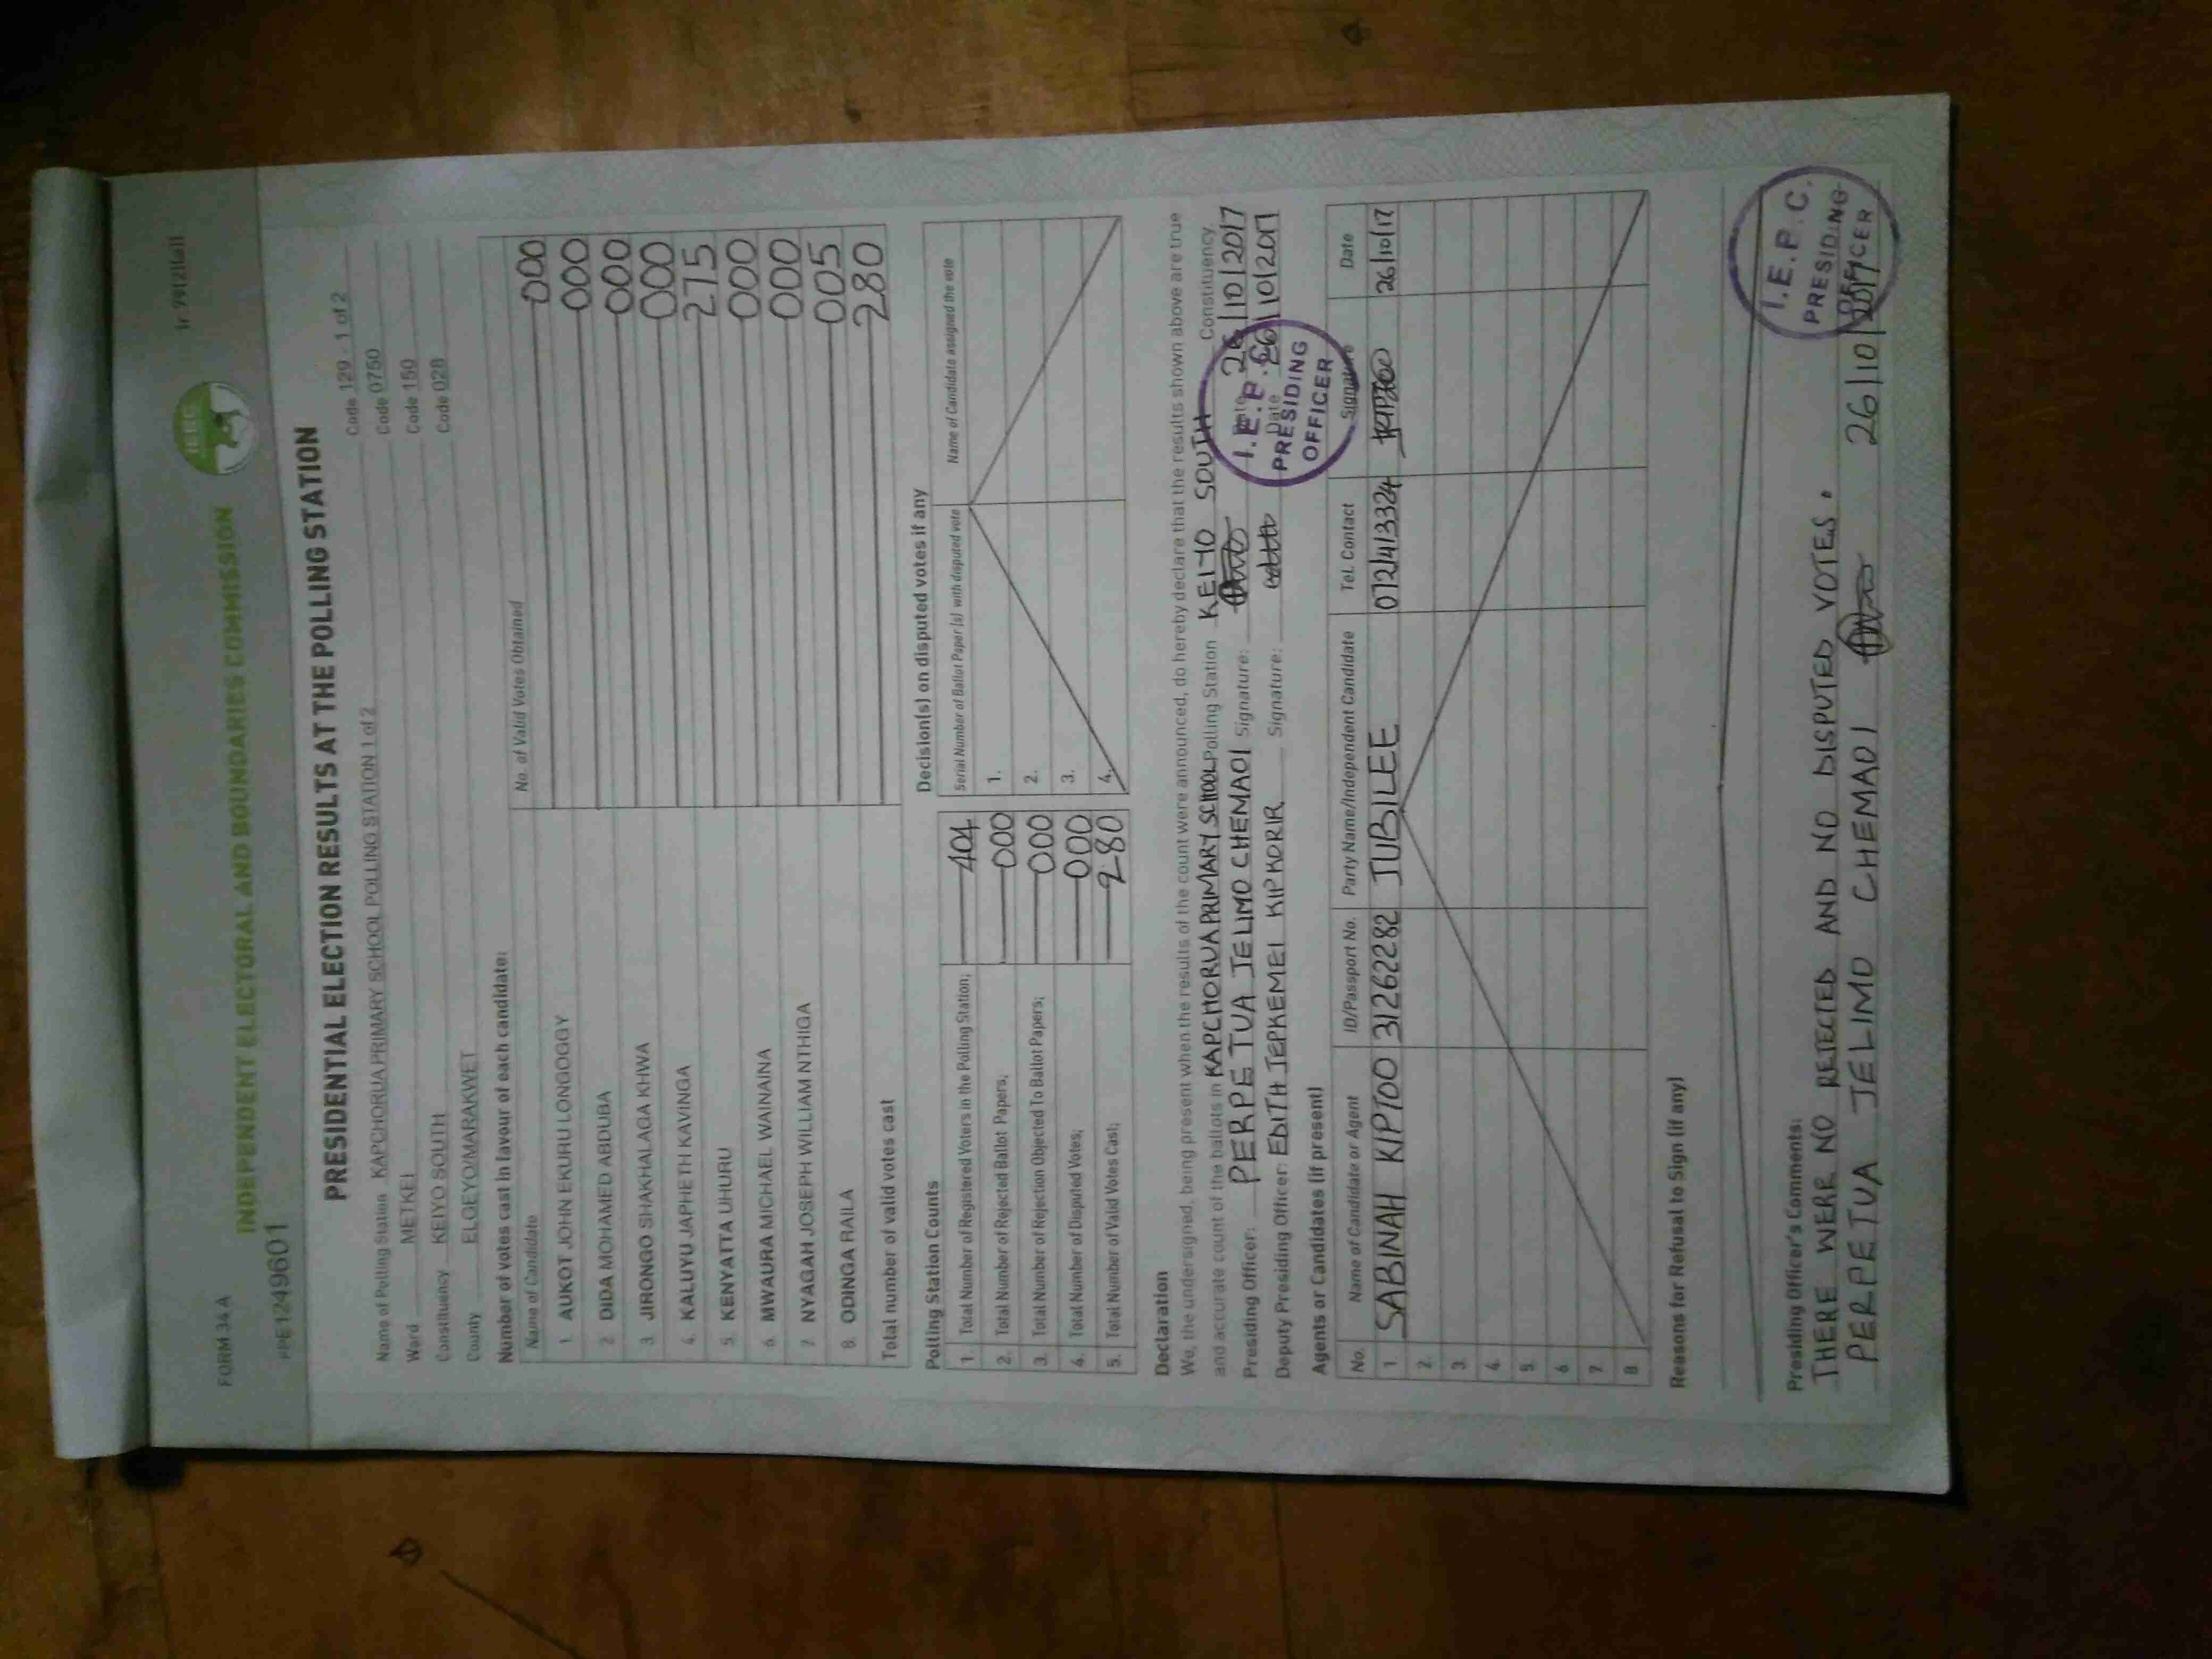 FORM 34 A
INDEPENDENT ELECTORAL AND BOUNDARIES COMMISSION
IEBC
PRESIDENTIAL ELECTION RESULTS AT THE POLLING STATION
Name of Polling Station KAPCHORUA PRIMARY SCHOOL POLLING STATION 1 of 2 Code 129 - 1 of 2
Ward METKEI Code 0750
Constituency KEIYO SOUTH Code 150
County ELGEYO/MARAKWET Code 028
Number of votes cast in favour of each candidate:
Name of Candidate No. of Valid Votes Obtained
1 AUKOT JOHN EKURU LONGOGGY 000
2 DIDA MOHAMED ABDUBA 000
3 JIRONGO SHAKHALAGA KHWA 000
4. KALUYU JAPHETH KAVINGA 000
5 KENYATTA UHURU 275
6 MWAURA MICHAEL WAINAINA 000
7 NYAGAH JOSEPH WILLIAM NTHIGA 000
8. ODINGA RAILA 005
Total number of valid votes cast 280
Polling Station Counts
1. Total Number of Registered Voters in the Polling Station; 404
2. Total Number of Rejected Ballot Papers; 000
3. Total Number of Rejection Objected To Ballot Papers; 000
4. Total Number of Disputed Votes; 000
5. Total Number of Valid Votes Cast; 280
Decision(s) on disputed votes if any
Serial Number of Ballot Paper (s) with disputed vote Name of Candidate assigned the vote
1.
2.
3.
4.
Declaration
We, the undersigned, being present when the results of the count were announced, do hereby declare that the results shown above are true
and accurate count of the ballots in KAPCHORUA PRIMARY SCHOOL Polling Station KEIYO SOUTH Constituency
Presiding Officer: PERPETUA JELIMO CHEMAOI Signature: Date 26/10/2017
Deputy Presiding Officer: EDITH JEPKEMEI KIPKORIR Signature: Date 26/10/2017
I.E.B.C.
PRESIDING
OFFICER
Agents or Candidates (if present)
No. Name of Candidate or Agent ID/Passport No. Party Name/Independent Candidate Tel. Contact Signature Date
1. SABINAH KIPTOO 31262282 JUBILEE 072413324 26/10/17
2.
3.
4.
5.
6
7
8
Reasons for Refusal to Sign (if any)
Presiding Officer's Comments:
THERE WERE NO REJECTED AND NO DISPUTED VOTES.
PERPETUA JELIMO CHEMAOI 26/10/2017
I.E.B.C.
PRESIDING
OFFICER